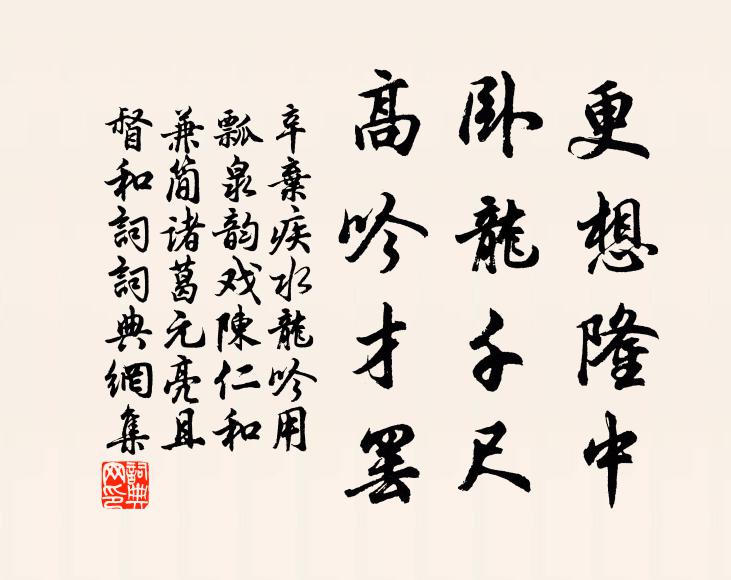 更想隆中
卧龍千尺
高吟才罷
辛棄疾水龍吟用
瓢泉韵戏陳仁和
兼简诸葛元亮且
督和詞詞典網集
詞典
网印